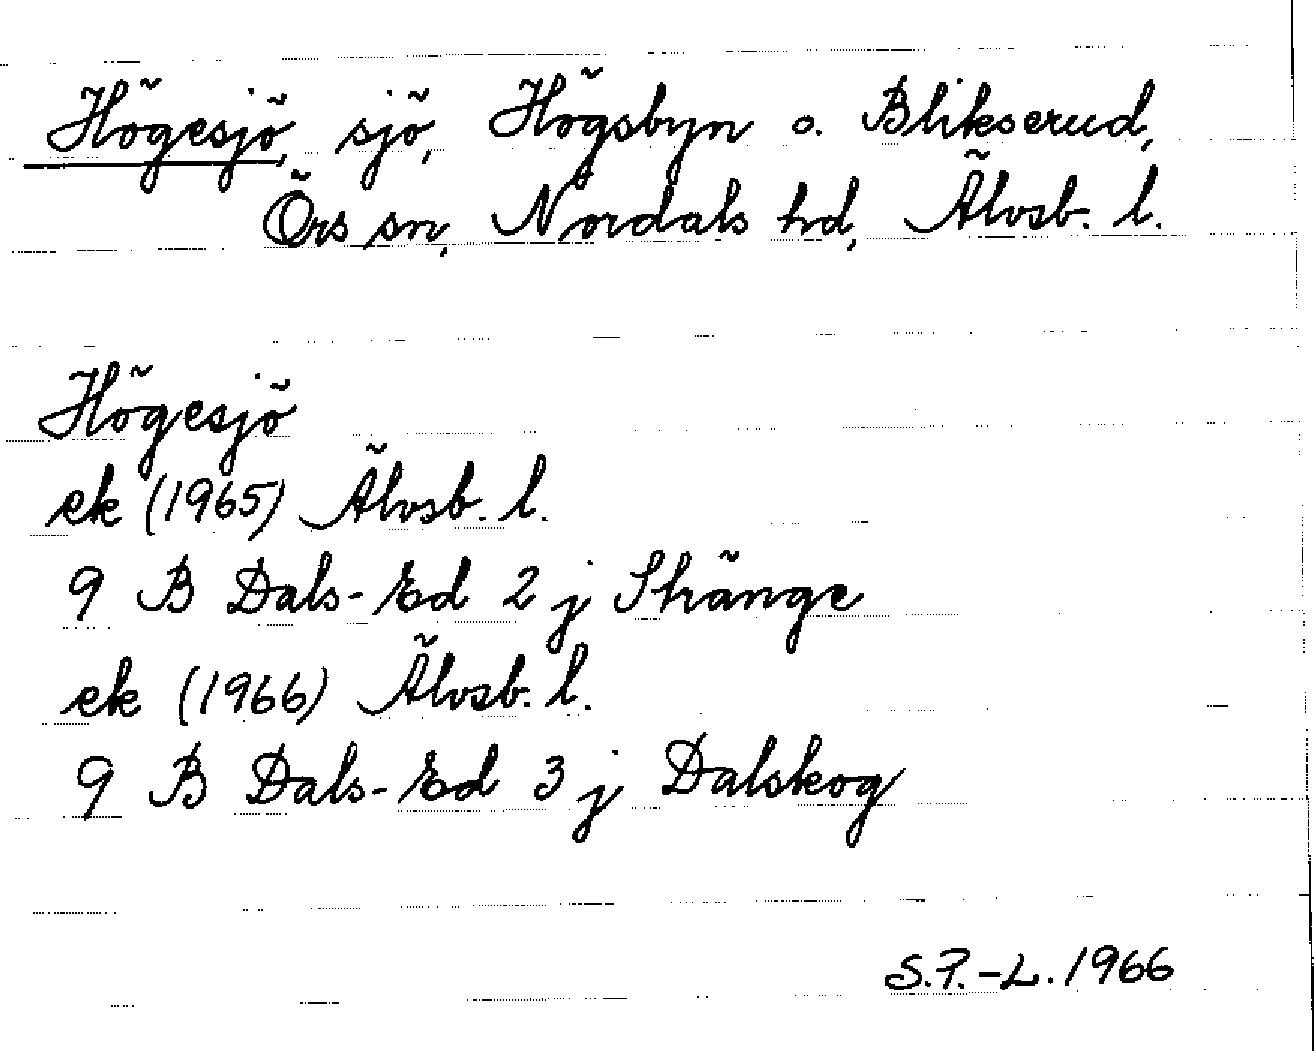 Högesjö, sjö, Högsbyn o. Blikserud,
Örs sn, Nordals hd, Älvsb. l.
Högesjö
ek (1965) Älvsb. l.
9 B Dals-Ed 2 j Skänge
ek (1966) Älvsb. l.
9 B Dals-Ed 3 j Dalskog
S.F.-L. 1966